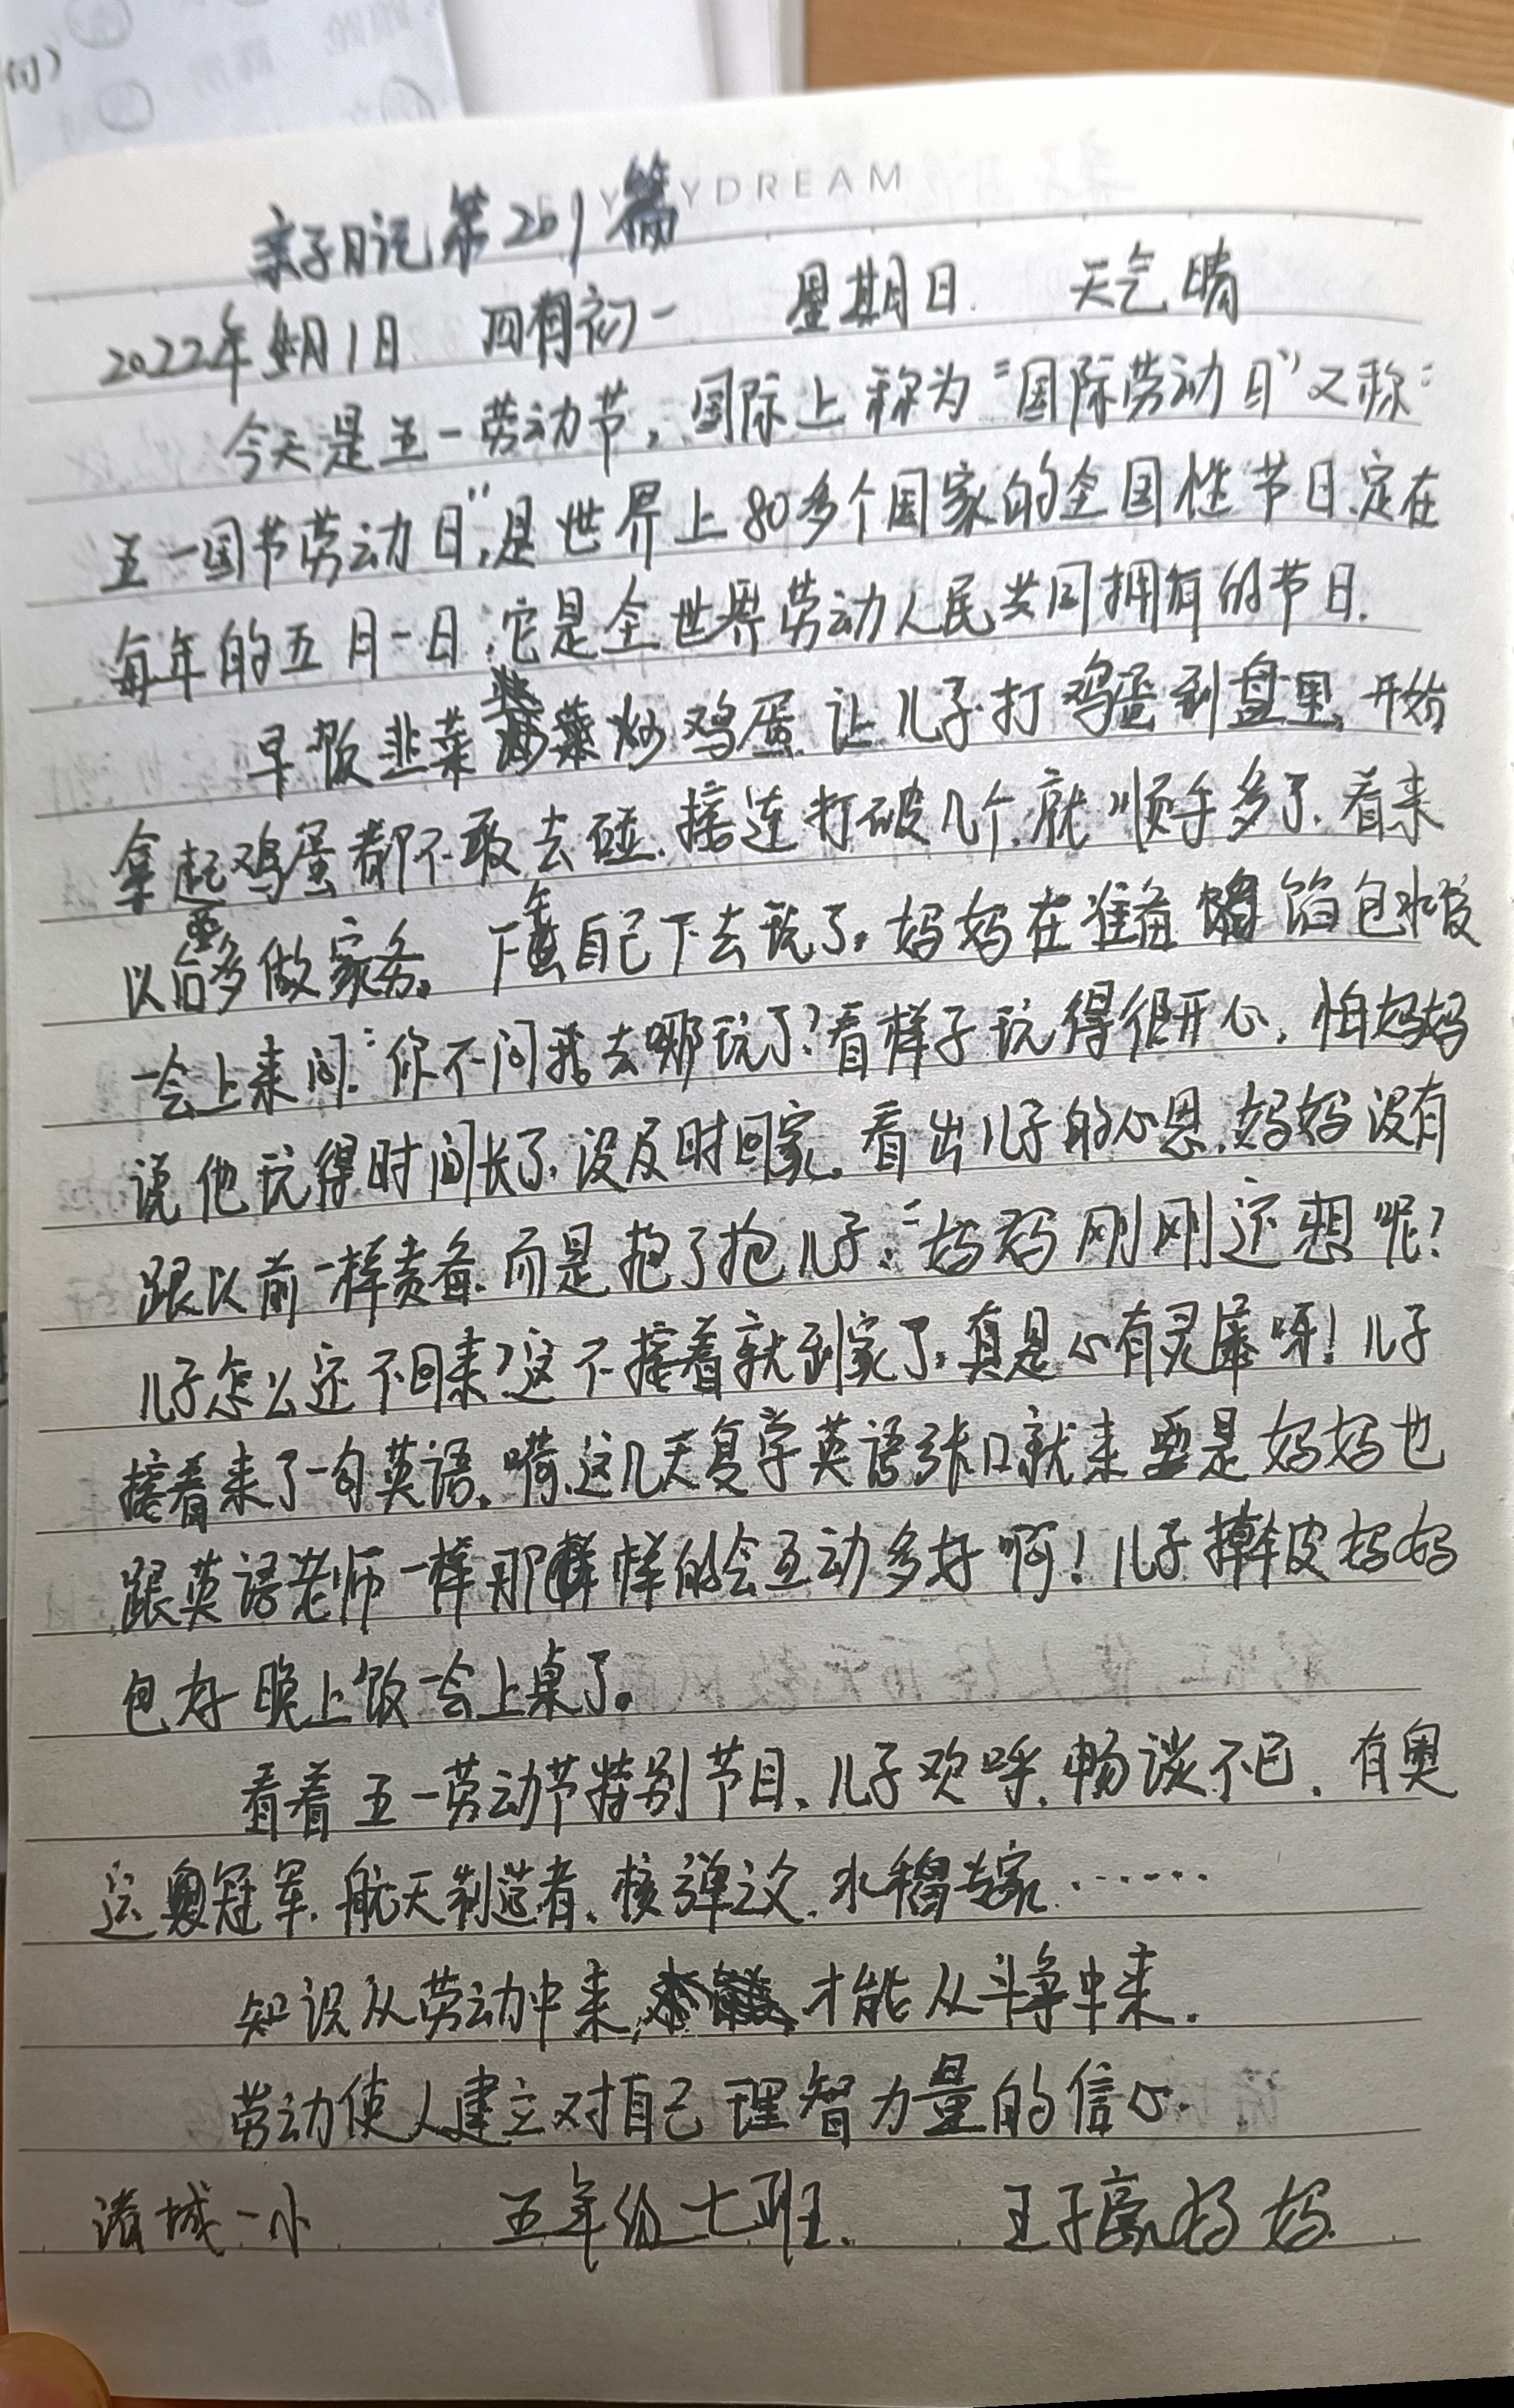 句）
EVERYDREAM
亲子日记第201篇
2022年5月1日 四月初一 星期日. 天气晴
今天是五一劳动节，国际上称为“国际劳动日”又称：
五一国节劳动日”，是世界上80多个国家的全国性节日、定在
每年的五月一日.它是全世界劳动人民共同拥有的节日.
早饭韭菜炒鸡蛋.让儿子打鸡蛋到盘里，开始
拿起鸡蛋都不敢去碰.接连打破几个.就顺手多了.看来
以后要多做家务。下午自己下去玩了。妈妈在准备馅包水饺
一会上来问：“你不问我去哪玩了？看样子玩得很开心，怕妈妈
说他玩得时间长了.没及时回家。看出儿子的心思.妈妈没有
跟以前一样责备.而是抱了抱儿子：“妈妈刚刚还想呢？
儿子怎么还不回来？这不接着就到家了。真是心有灵犀呀！儿子
接着来了一句英语。嗬.这几天复学英语张口就来要是妈妈也
跟英语老师一样那样的会互动多好啊！儿子擀皮妈妈
包好晚上饭一会上桌了。
看着五一劳动节特别节目、儿子欢呼.畅谈不已.有奥
运冠军.航天制造者、核弹之父.水稻专家.……
知识从劳动中来，才能从斗争中来.
劳动使人建立对自己理智力量的信心.
诸城一小 五年级七班. 王子豪妈妈.